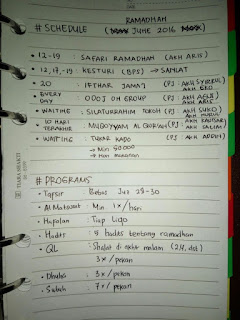 RAMADHAN
# SCHEDULE ( JUNE 2016 )
• 12-19 : SAFARI RAMADHAN (AKH ARIS)
• 12, 17, 19 : KESTURI (BPS) → SAMLAT
• 20 : IFTHAR JAMA'I (PJ : AKH SYAEFUL
AKH EKO)
• EVERY DAY : ODOJ ON GROUP (PJ : AKH AGUS
AKH ARIS)
• WAITING : SILATURRAHIM TOKOH (PJ : AKH SUKO
• 10 HARI TERAKHIR : MUBOYYAM AL QUR'AN (PJ : AKH
AKH SALIM)
• WAITING : TUKAR KADO (PJ : AKH ADDIN)
→ Min 50.000
→
# PROGRAMS
• Tafsir : Bebas Juz 28-30
• Al Matsurat : Min 1x/hari
• Hafalan : Tiap Liqo
• Hadits : 5 hadits tentang ramadhan
• QL : Sholat di akhir malam (2R, dst)
3x/pekan
• Dhuha : 3x/pekan
• : 7x/pekan